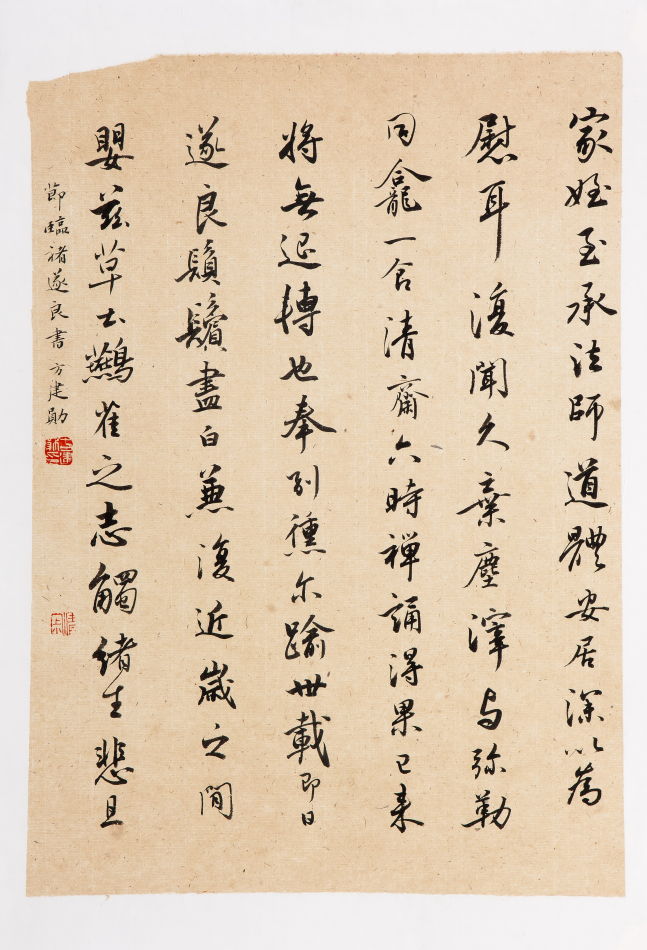 家姪至承法師道體安居深以為
慰耳復聞久棄塵滓与弥勒
同龕一食清齋六時禅誦得果已来
将無退轉也奉別𤏲尔踰卅載即日
遂良鬚鬢盡白兼復近歲之間
嬰茲草土鷰雀之志觸緒生悲且
節臨褚遂良書方建勛